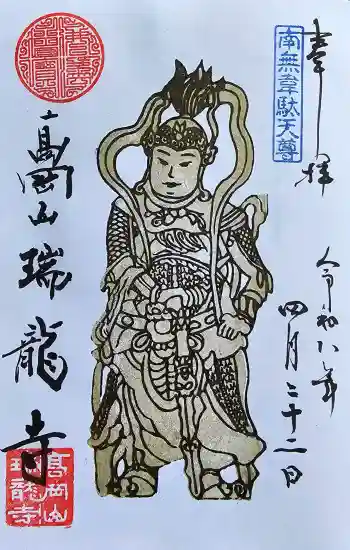 奉拝
南無韋駄天尊
令和八年
四月二十二日
高岡山瑞龍寺
高岡山
瑞龍寺